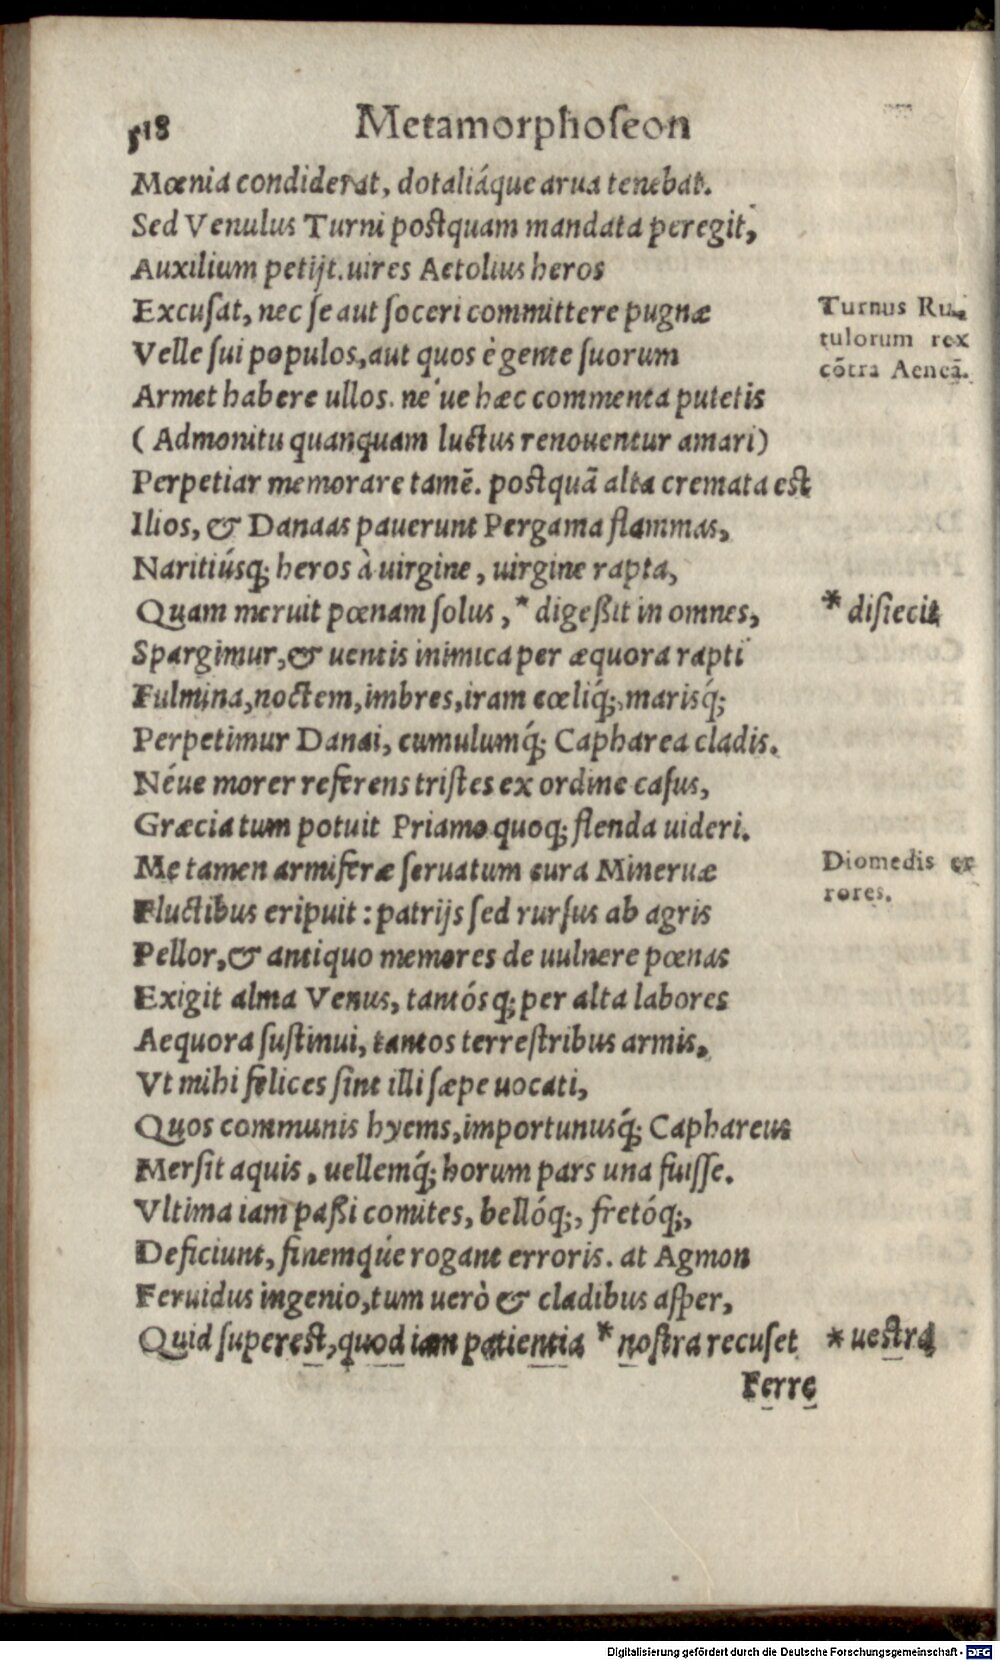 518 Metamorphoſeon
Mœnia condiderat, dotaliáque arua tenebat.
Sed Venulus Turni poſtquam mandata peregit,
Auxilium petijt. uires Aetolius heros
Excuſat, nec ſe aut ſoceri committere pugnæ
Velle ſui populos, aut quos è gente ſuorum
Armet habere ullos. né ue hæc commenta putetis
( Admonitu quanquam luctus renouentur amari)
Perpetiar memorare tamẽ. poſtquã alta cremata eſt
Ilios, & Danaas pauerunt Pergama flammas,
Naritiúsq; heros à uirgine, uirgine rapta,
Quam meruit pœnam ſolus, * digeßit in omnes,
Spargimur, & uentis inimica per æquora rapti
Fulmina, noctem, imbres, iram cœliq́;, marisq́;
Perpetimur Danai, cumulumq́; Capharea cladis.
Néue morer referens triſtes ex ordine caſus,
Græcia tum potuit Priamo quoq; flenda uideri.
Me tamen armiferæ ſeruatum cura Mineruæ
Fluctibus eripuit : patrijs ſed rurſus ab agris
Pellor, & antiquo memores de uulnere pœnas
Exigit alma Venus, tantósq; per alta labores
Aequora ſuſtinui, tantos terreſtribus armis.
Vt mihi felices ſint illi ſæpe uocati,
Quos communis hyems, importunusq́; Caphareus
Merſit aquis, uellemq́; horum pars una fuiſſe.
Vltima iam paßi comites, bellóq;, fretóq;,
Deficiunt, finemqúe rogant erroris. at Agmon
Feruidus ingenio, tum uerò & cladibus aſper,
Quid ſupereſt, quod iam patientia * noſtra recuſet
Ferre
Turnus Ru-
tulorum rex
cõtra Aeneã.
* diſiecit
Diomedis er
rores.
* ueſtra
Digitalisierung gefördert durch die Deutsche Forschungsgemeinschaft - DFG